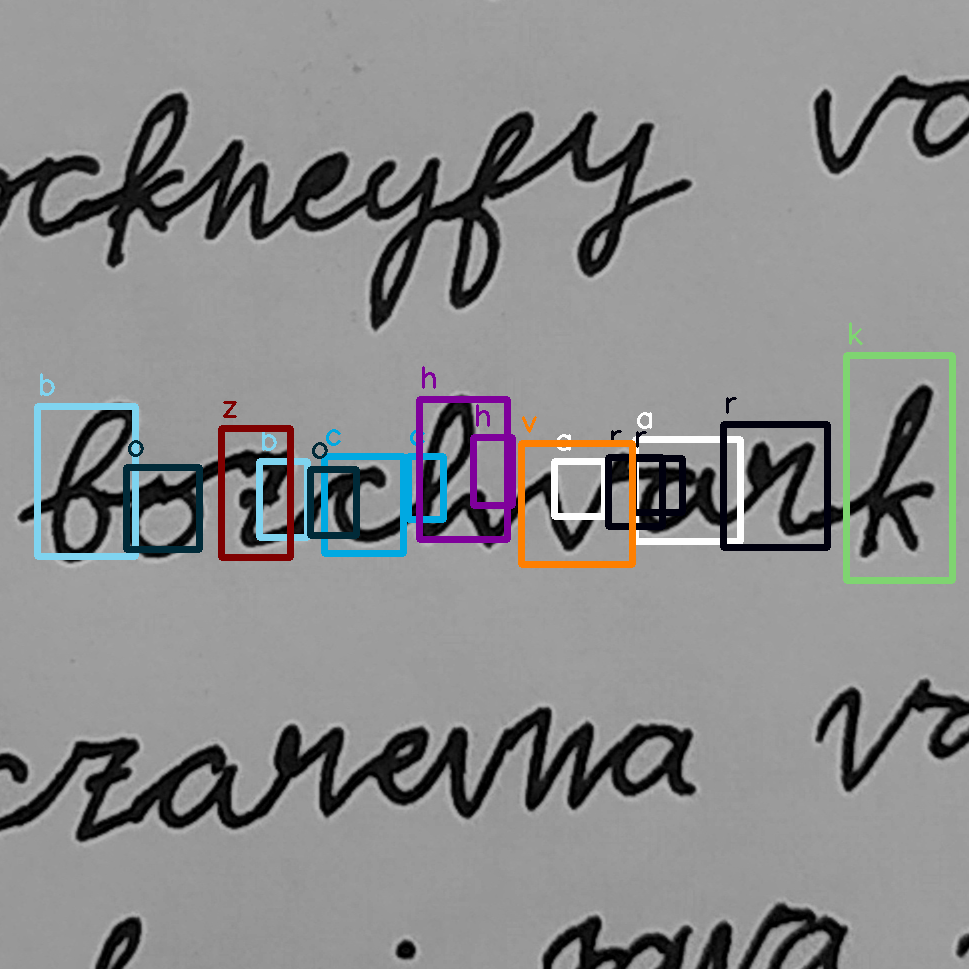 ockneyfy vo
b o z b o c c h h v a r r a r k
bozchvark
czarevna vo